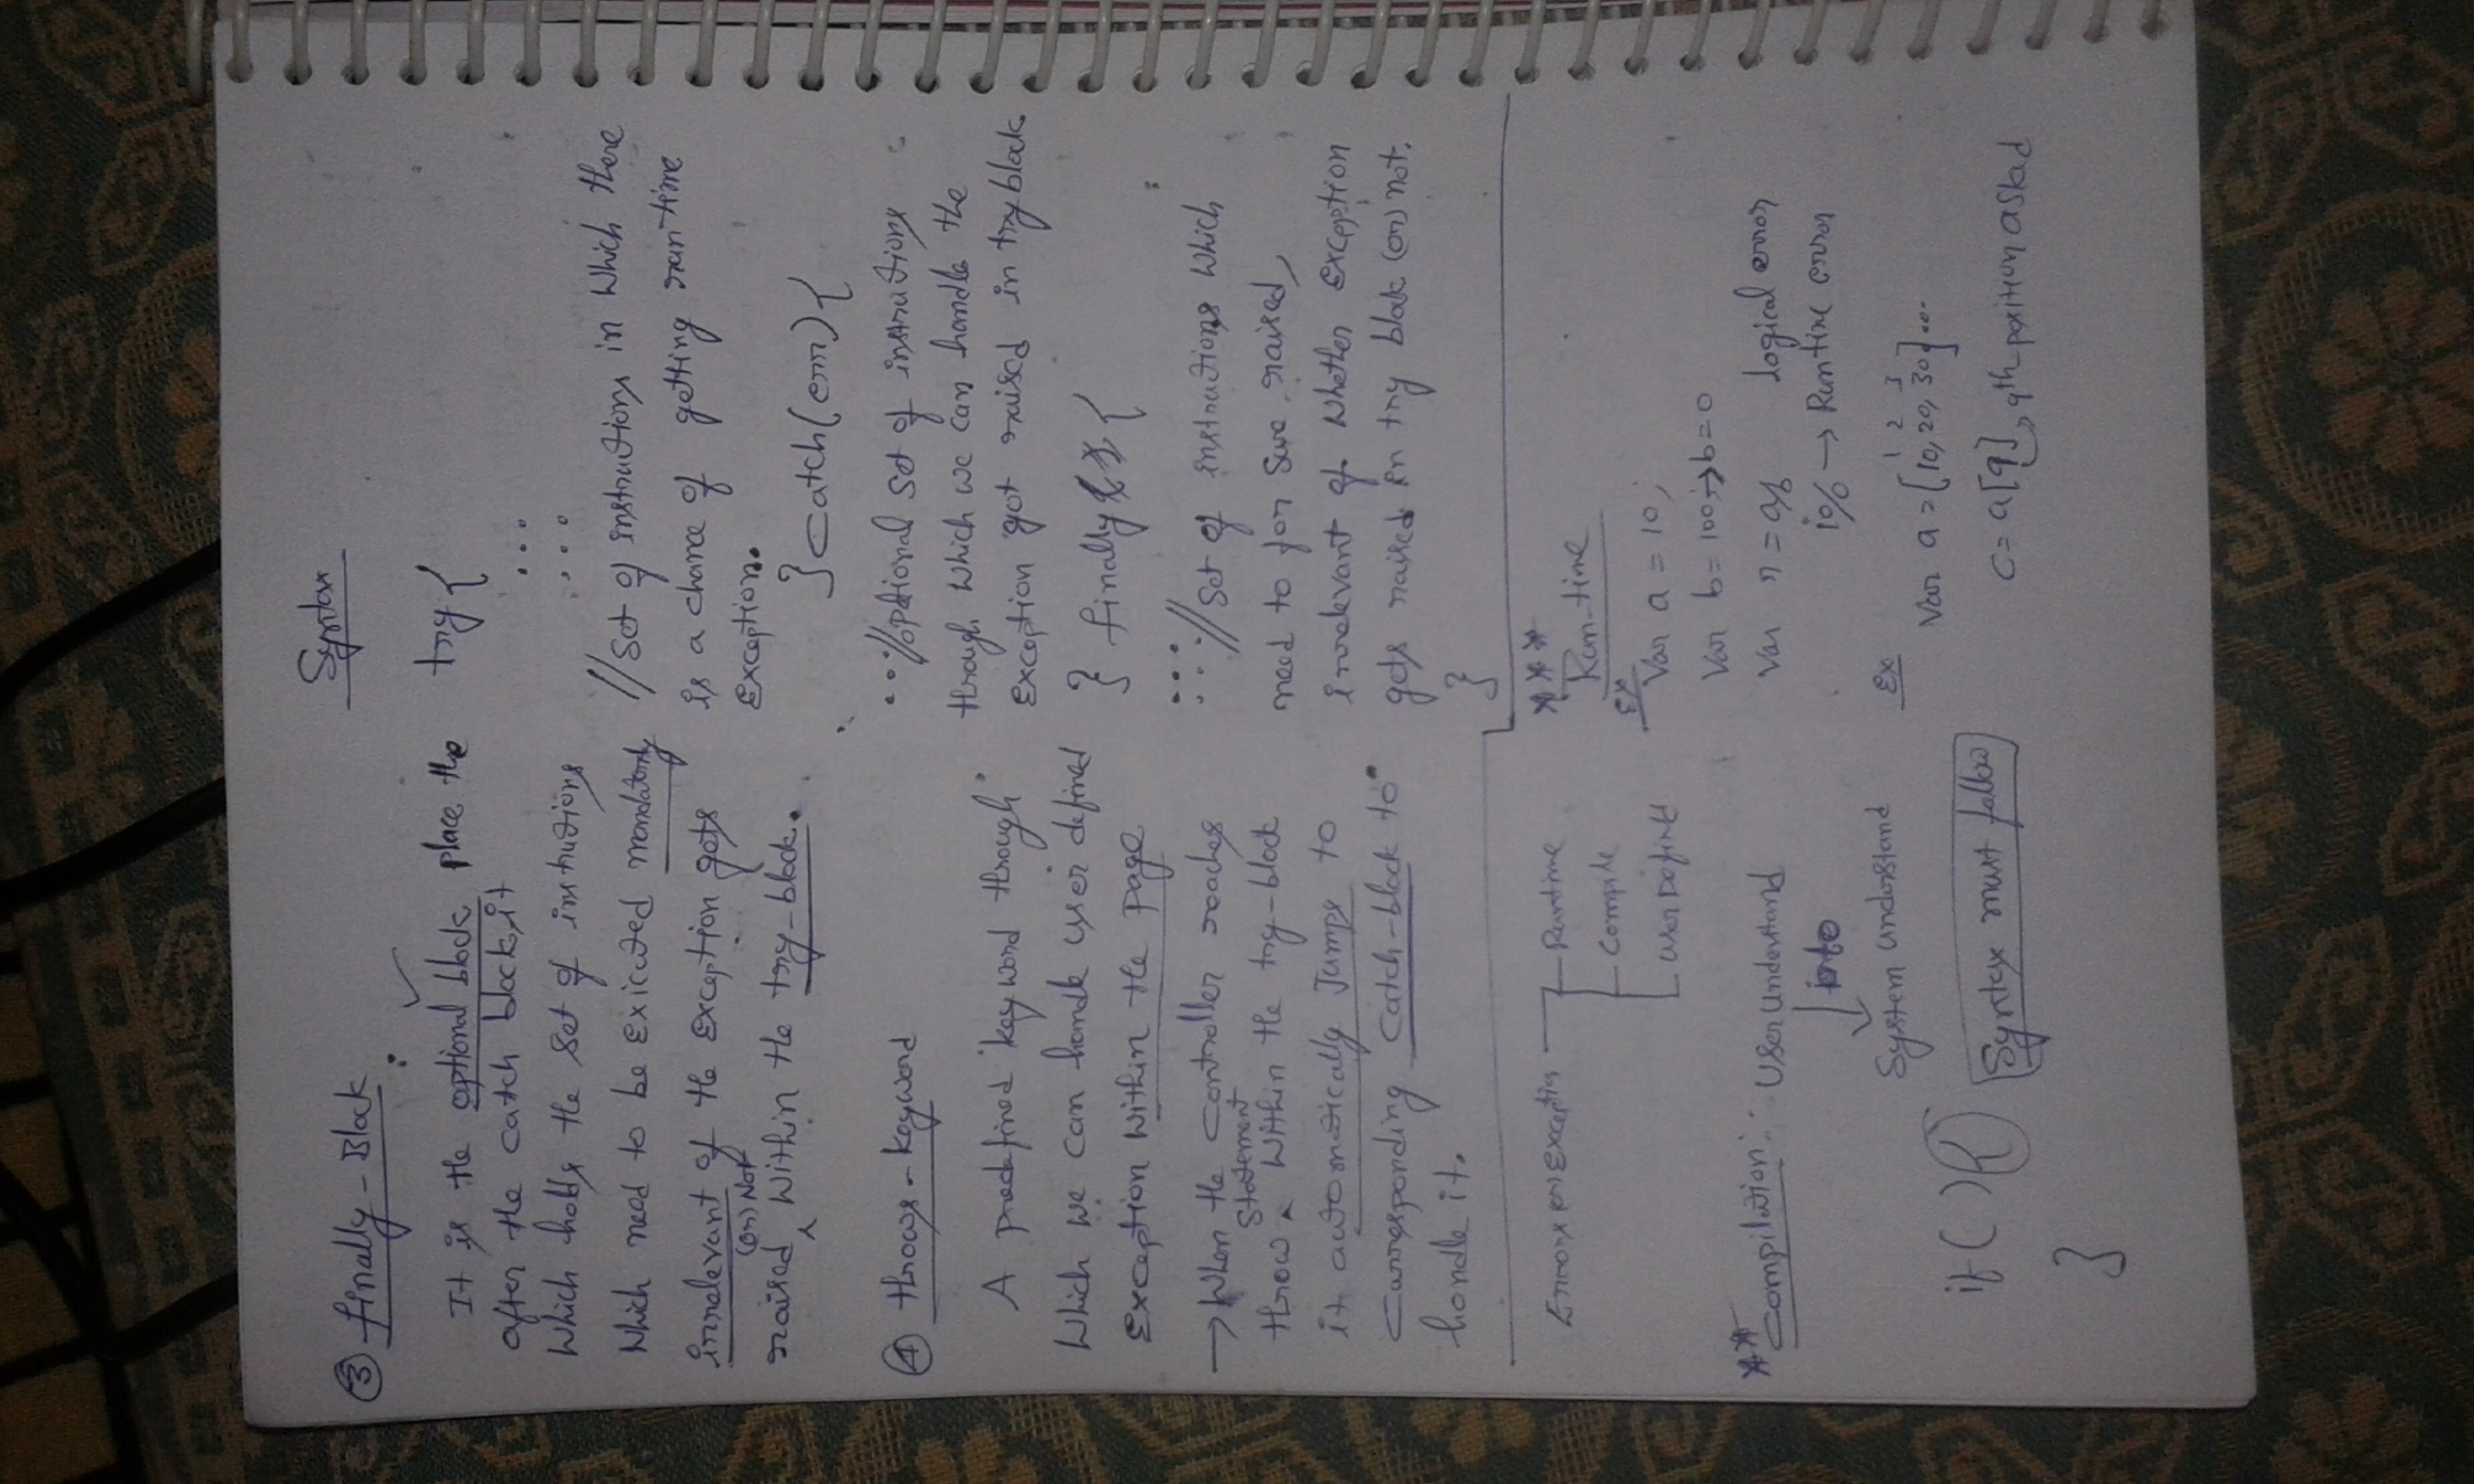 ③ finally - Block
It is the optional block place the
after the catch block, it
which holds the set of instructions
which need to be exicuted mandatory
irrelevant of the exception gets
(or) Not
raised within the try-block.
④ throws - keyword
A predefined keyword through
which we can handle user defined
Exception within the page
→ When the controller reaches
Statement
throw within the try-block
it automatically Jumps to
Corresponding catch-block to
handle it.
Syntax
try {
....
....
// set of instructions in which there
is a chance of getting run-time
Exception..
} catch (err) {
...// optional set of instructions
through which we can handle the
Exception got raised in try block.
} finally {
....
...// Set of instructions which
need to for sure raised,
irrelevant of whether Exception
gets raised in try block (or) not.
}
Errors or Exception
Runtime
Compile
User Define
** Compilation:- User understand
into
System understand
if ( ) {
}
Syntex must follow
*** Run-time
Ex
Var a = 10;
Var b = 100; → b = 0
Var n = a/b logical error
10/0 → Runtime error
Ex
1 2 3
Var a = [10, 20, 30] ...
c = a[9] → 9th position asked